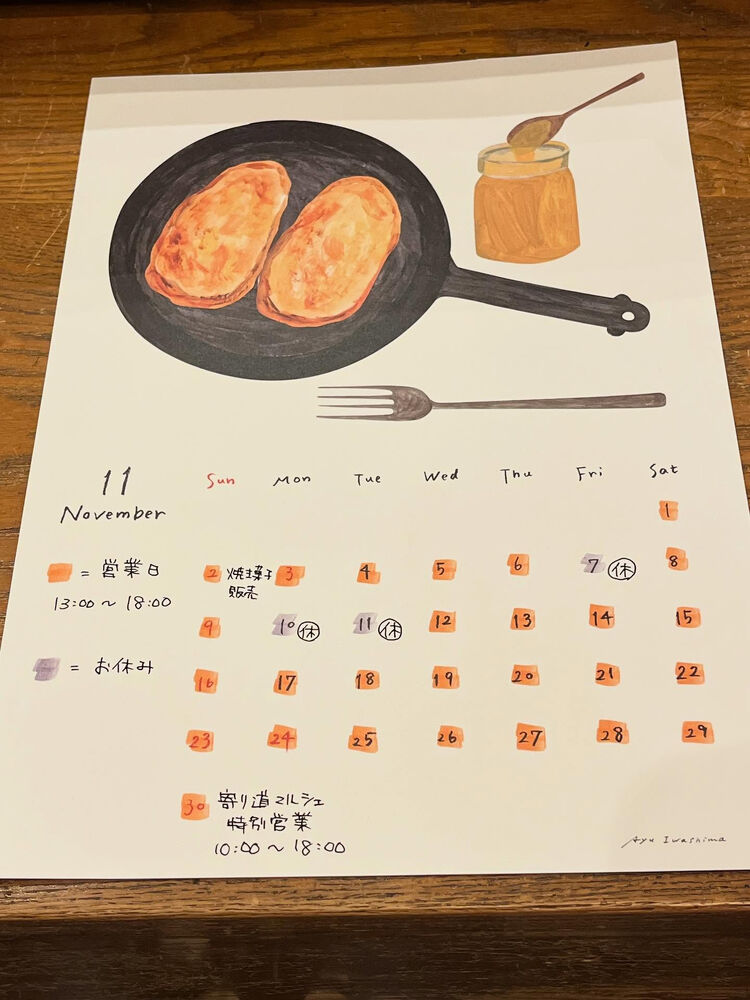 11
November
Sun Mon Tue Wed Thu Fri Sat
1
2 焼菓子販売 3 4 5 6 7 休 8
9 10 休 11 休 12 13 14 15
16 17 18 19 20 21 22
23 24 25 26 27 28 29
30 寄り道マルシェ
特別営業
10:00～18:00
= 営業日
13:00～18:00
= お休み
Ayu Iwashima